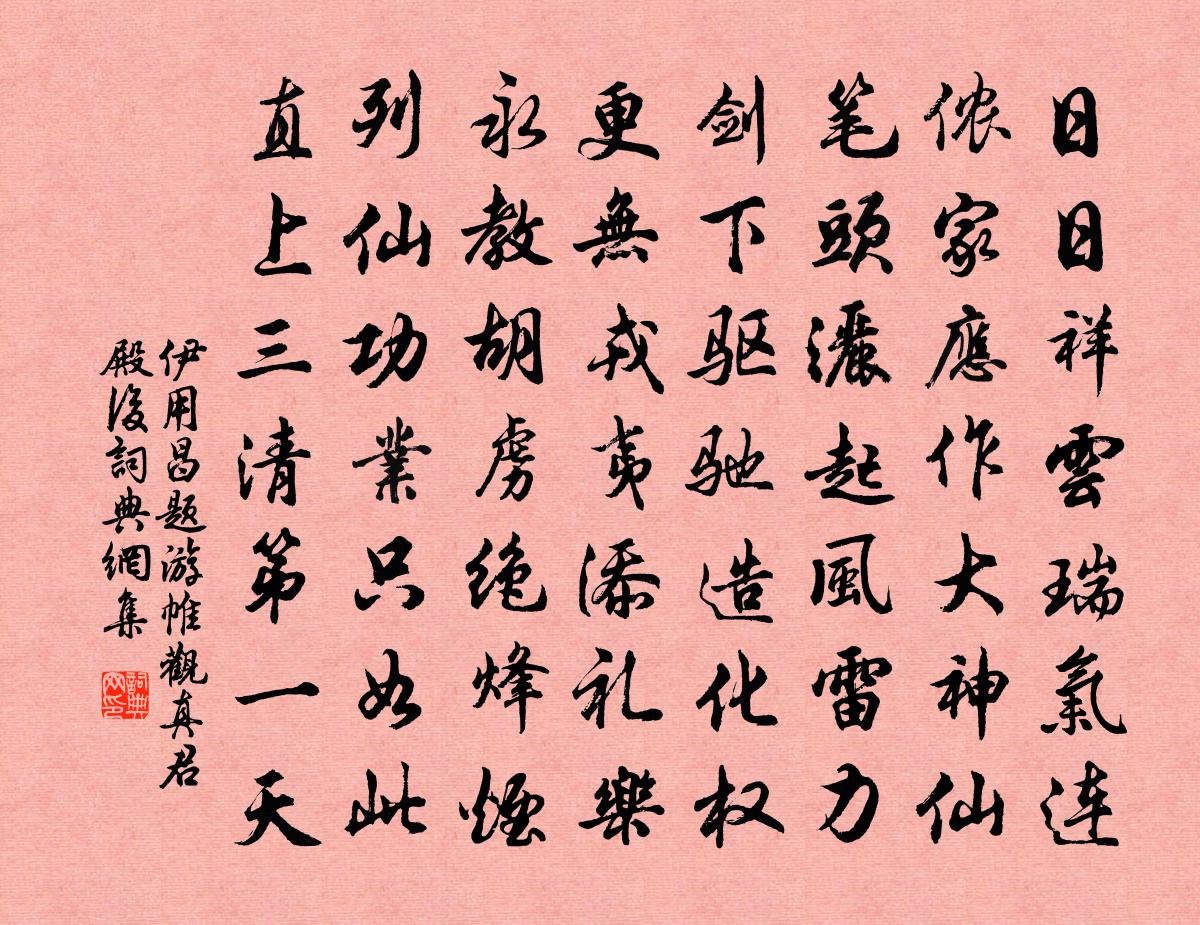 日日祥雲瑞氣連
侬家應作大神仙
笔頭灑起風雷力
剑下驱驰造化权
更無戎夷添礼樂
永教胡虏绝烽煙
列仙功業只如此
直上三清第一天
伊用昌题游帷觀真君
殿後詞典網集
詞典网印